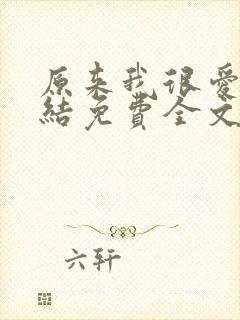 原来我很爱
結免費全文
六轩